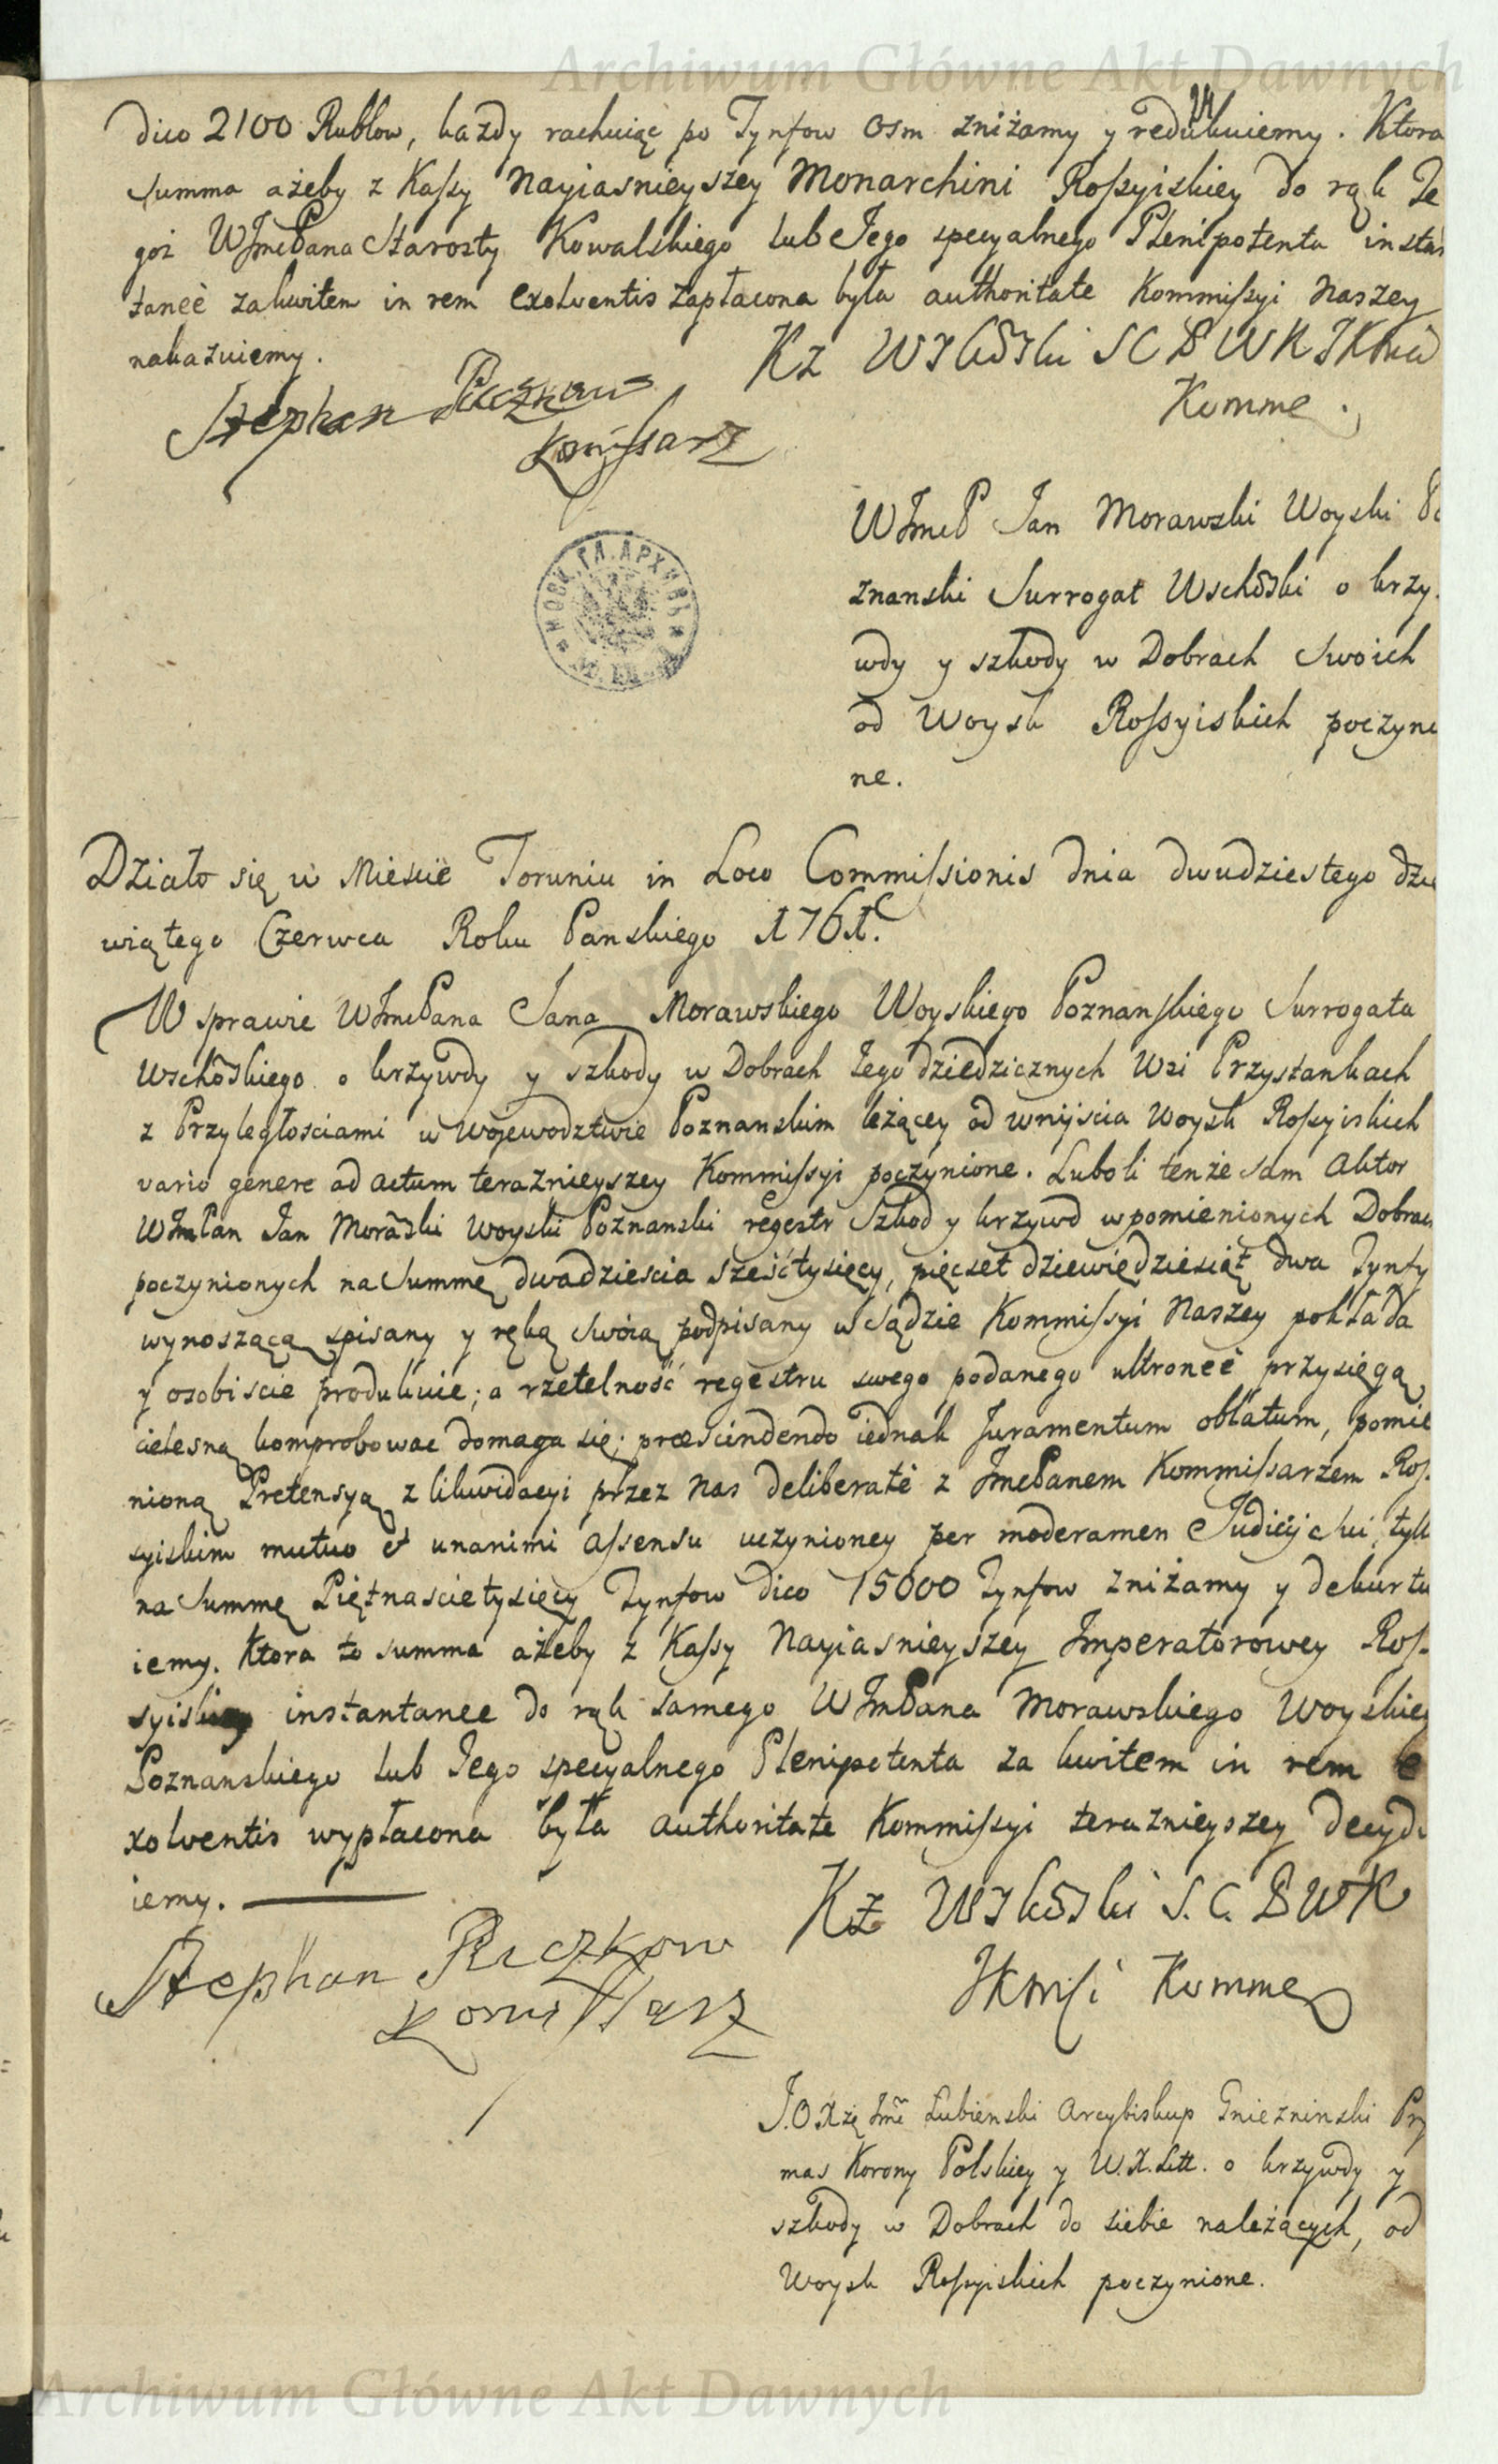 Archiwum Główne Akt Dawnych
dico 2100 Rublow, każdy rachuiąc po Tynfow osm zniżamy y redukuiemy. Ktora
summa ażeby z Kassy Nayiasnieyszey Monarchini Rossyiskiey do rąk Te
goż WJmcPana Starosty Kowalskiego lub Jego specyalnego Plenipotenta instan
taneè za kwitem in rem exolventis zapłacona była authoritate Kommissyi Naszey
nakazuiemy.
Stephan Puczkow
Komissarz
Komme.
WJmcP Jan Morawski Woyski Po
znanski Surrogat Wschōski o krzy.
wdy y szkody w Dobrach swoich
od Woysk Rossyiskich poczynio
ne.
МОСК. ГЛ. АРХИВЪ
Działo się w Miescie Toruniu in Loco Commissionis dnia dwudziestego dzie
wiątego Czerwca Roku Panskiego 1761.
W sprawie WJmcPana Jana Morawskiego Woyskiego Poznanskiego Surrogata
Wschōskiego o krzywdy y szkody w Dobrach Jego dziedzicznych Wsi Przystankach
z Przyległosciami w Wojewodztwie Poznanskim leżącey od wnijscia Woysk Rossyiskich
vario genere ad actum teraznieyszey Kommissyi poczynione. Luboli tenże sam Aktor
WJmPan Jan Morāski Woyski Poznanski regestr szkod y krzywd w pomienionych Dobrach
poczynionych na Summę dwadziescia sześćtysięcy, pięcset dziewiędziesiąt dwa Tynfy
wynoszącą spisany y ręką swoią podpisany w sądzie Kommissyi Naszey pokłada
y osobiscie produkuie; a rzetelność regestru swego podanego ultroneè przysięgą
cielesną komprobowac domaga się; præscindendo iednak Juramentum oblatum, pomie
nioną Pretensyą z likwidacyi przez nas deliberatè z JmcPanem Kommissarzem Ros.
syiskim mutuo et unanimi assensu uczynioney per moderamen Judicij sui, tylk
na Summę Piętnascietysięcy Tynfow dico 15000 Tynfow zniżamy y dekurtu
iemy. Ktora to summa ażeby z Kassy Nayiasnieyszey Imperatorowey Ros.
syiskiey instantanee do rąk samego WJmPana Morawskiego Woyskieg
Poznanskiego lub Jego specyalnego Plenipotenta za kwitem in rem e
xolventis wypłacona była authoritate Kommissyi teraznieyszey decydu
iemy.
Stephan Puczkow
Komissarz
S. C. B W K
Komme
J.O Xżę Jmć Łubienski Arcybiskup Gniezninski Pry
mas Korony Polskiey y W.X.Litt. o krzywdy y
szkody w Dobrach do siebie należących, od
Woysk Rossyiskich poczynione.
Archiwum Główne Akt Dawnych